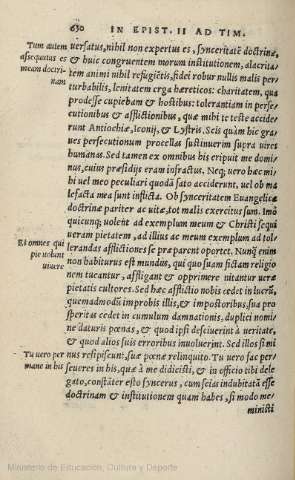 630 IN EPIST. II AD TIM.
Tum autem
assequutus es
meam doctri-
nam
uersatus, nihil non expertus es, synceritatē doctrinæ,
& huic congruentem morum institutionem, alacrita-
tem animi nihil refugiētis, fidei robur nullis malis per
turbabilis, lenitatem erga hæreticos: charitatem, qua
prodesse cupiebam & hostibus: tolerantiam in perse-
cutionibus & afflictionibus, quæ mihi te teste accide-
runt Antiochiæ, Iconij, & Lystris. Scis quàm hic gra-
ues persecutionum procellas sustinuerim supra uires
humanas. Sed tamen ex omnibus his eripuit me domi-
nus, cuius præsidijs eram infractus. Neq; uero hæc mi-
hi uel meo peculiari quodā fato acciderunt, uel ob ma
lefacta mea sunt inflicta. Ob synceritatem Euangelicæ
doctrinæ pariter ac uitæ, tot malis exercitus sum. Imò
Et omnes qui
pie uolunt
uiuere
quicunq; uolent ad exemplum meum & Christi sequi
ueram pietatem, ad illius ac meum exemplum ad tol-
lerandas afflictiones se præparent oportet. Nunq̃ enim
non habiturus est mundus, qui quo suam fictam religio
nem tueantur, affligant & opprimere nitantur ueræ
pietatis cultores. Sed hæc afflictio nobis cedet in lucrū,
quemadmodū improbis illis, & impostoribus, sua pro
speritas cedet in cumulum damnationis, duplici nomi-
ne daturis pœnas, & quod ipsi desciuerint à ueritate,
& quod alios suis erroribus inuoluerint. Sed illos si mi
Tu uero per
mane in his
nus resipiscunt, suæ pœnæ relinquito. Tu uero fac per-
seueres in his, quæ à me didicisti, & in officio tibi dele
gato, constāter esto syncerus, cum scias indubitatā esse
doctrinam & institutionem quam habes, si modo me/
ministi
Ministerio de Educación, Cultura y Deporte